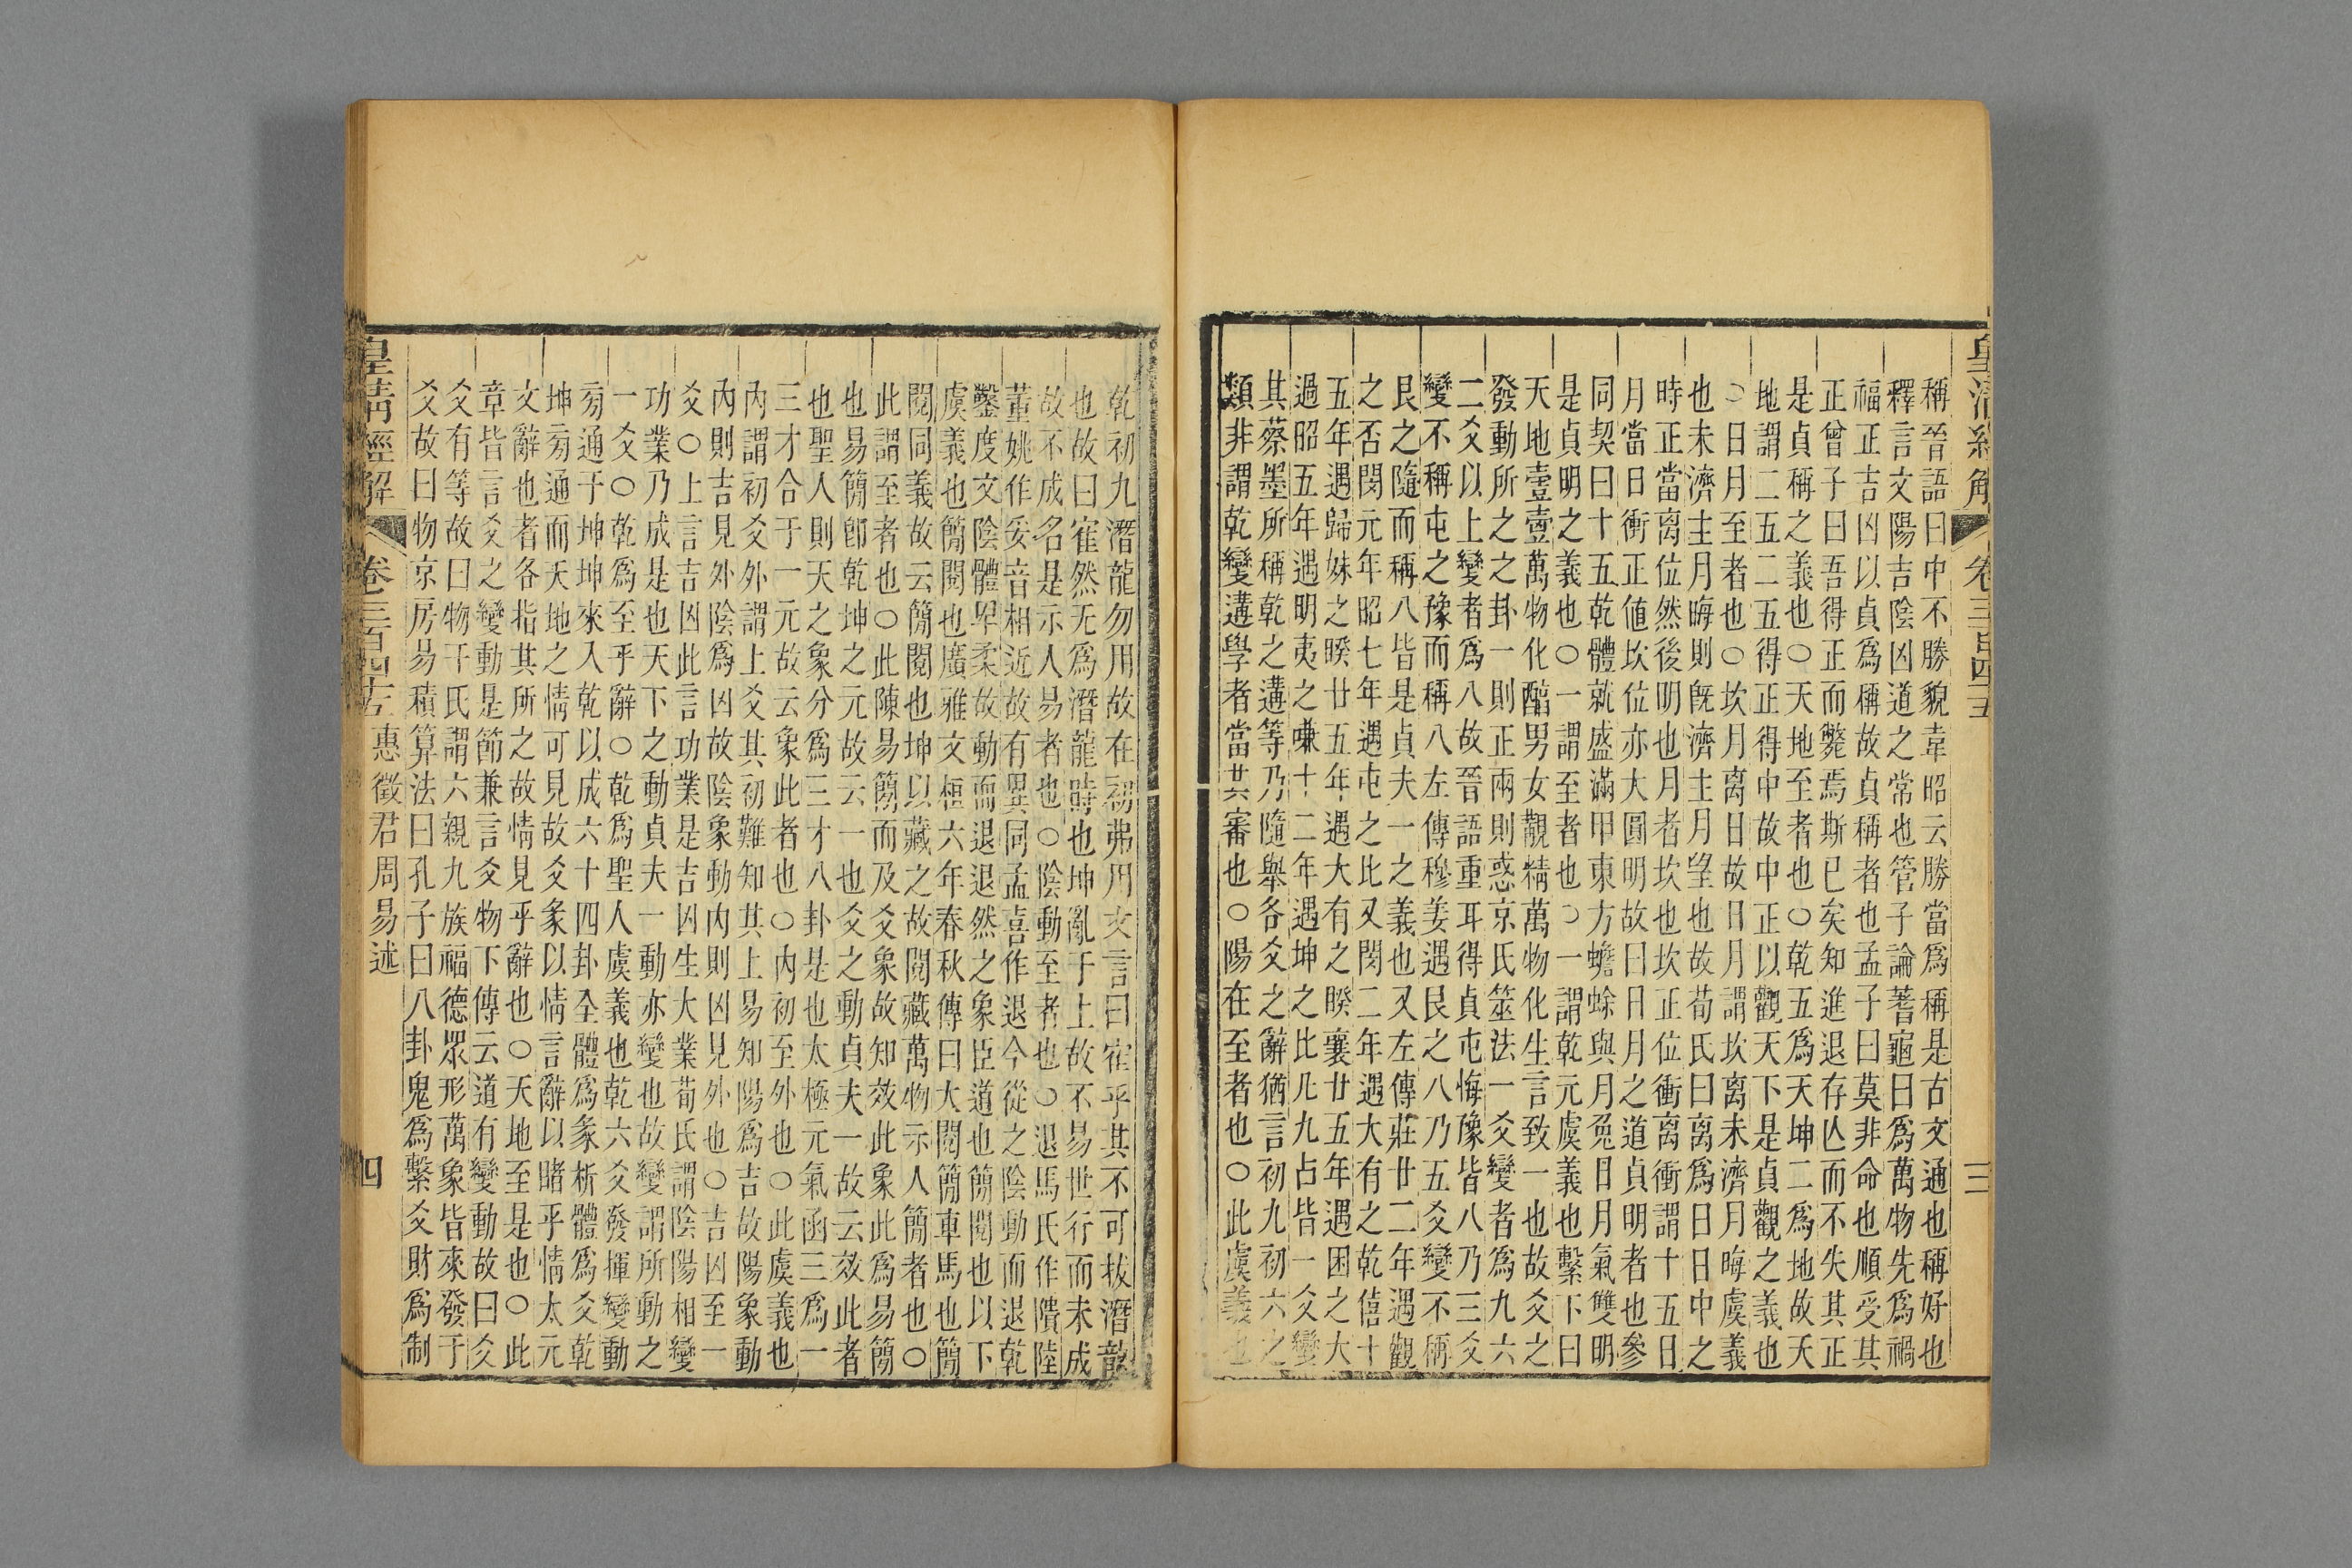 皇清經解
卷三百四十五
三
稱晉語曰中不勝貌韋昭云勝當爲稱是古文通也稱好也
釋言文陽吉陰凶道之常也管子論蓍龜曰爲萬物先爲禍
福正吉凶以貞爲稱故貞稱者也孟子曰莫非命也順受其
正曾子曰吾得正而斃焉斯已矣知進退存亾而不失其正
是貞稱之義也○天地至者也○乾五爲天坤二爲地故天
地謂二五二五得正得中故中正以觀天下是貞觀之義也
○日月至者也○坎月离日故日月謂坎离未濟月晦虞義
也未濟主月晦則旣濟主月望也故荀氏曰离爲日日中之
時正當离位然後明也月者坎也坎正位衝离衝謂十五日
月當日衝正値坎位亦大圓明故曰日月之道貞明者也參
同契曰十五乾體就盛滿甲東方蟾蜍與月兔日月氣雙明
是貞明之義也○一謂至者也○一謂乾元虞義也繫下曰
天地壹壹萬物化醕男女覯精萬物化生言致一也故爻之
發動所之之卦一則正兩則惑京氏筮法一爻變者爲九六
二爻以上變者爲八故晉語重耳得貞屯悔豫皆八乃三爻
變不稱屯之豫而稱八左傳穆姜遇艮之八乃五爻變不稱
艮之隨而稱八皆是貞夫一之義也又左傳莊廿二年遇觀
之否閔元年昭七年遇屯之比又閔二年遇大有之乾僖十
五年遇歸妹之睽廿五年遇大有之睽襄廿五年遇困之大
過昭五年遇明夷之嗛十二年遇坤之比凡九占皆一爻變
其蔡墨所稱乾之遘等乃隨舉各爻之辭猶言初九初六之
類非謂乾變遘學者當共審也○陽在至者也○此虞義也
乾初九潛龍勿用故在初弗用文言曰寉乎其不可拔潛龍
也故曰寉然无爲潛龍時也坤亂于上故不易世行而未成
故不成名是示人易者也○陰動至者也○退馬氏作隤陸
董姚作妥音相近故有異同孟喜作退今從之陰動而退乾
鑿度文陰體卑柔故動而退退然之象臣道也簡閱也以下
虞義也簡閱也廣雅文桓六年春秋傳曰大閱簡車馬也簡
閱同義故云簡閱也坤以藏之故閱藏萬物示人簡者也○
此謂至者也○此陳易簡而及爻象故知效此象此爲易簡
也易簡卽乾坤之元故云一也爻之動貞夫一故云效此者
也聖人則天之象分爲三才八卦是也太極元氣函三爲一
三才合于一元故云象此者也○內初至外也○此虞義也
內謂初爻外謂上爻其初難知其上易知陽爲吉故陽象動
內則吉見外陰爲凶故陰象動內則凶見外也○吉凶至一
爻○上言吉凶此言功業是吉凶生大業荀氏謂陰陽相變
功業乃成是也天下之動貞夫一動亦變也故變謂所動之
一爻○乾爲至乎辭○乾爲聖人虞義也乾六爻發揮變動
旁通于坤坤來入乾以成六十四卦全體爲彖析體爲爻乾
坤旁通而天地之情可見故爻彖以情言辭以睹乎情太元
文辭也者各指其所之故情見乎辭也○天地至是也○此
章皆言爻之變動是節兼言爻物下傳云道有變動故曰爻
爻有等故曰物干氏謂六親九族福德眾形萬象皆來發于
爻故曰物京房易積算法曰孔子曰八卦鬼爲繫爻財爲制
皇清經解
卷三百四十五
惠徵君周易述
四